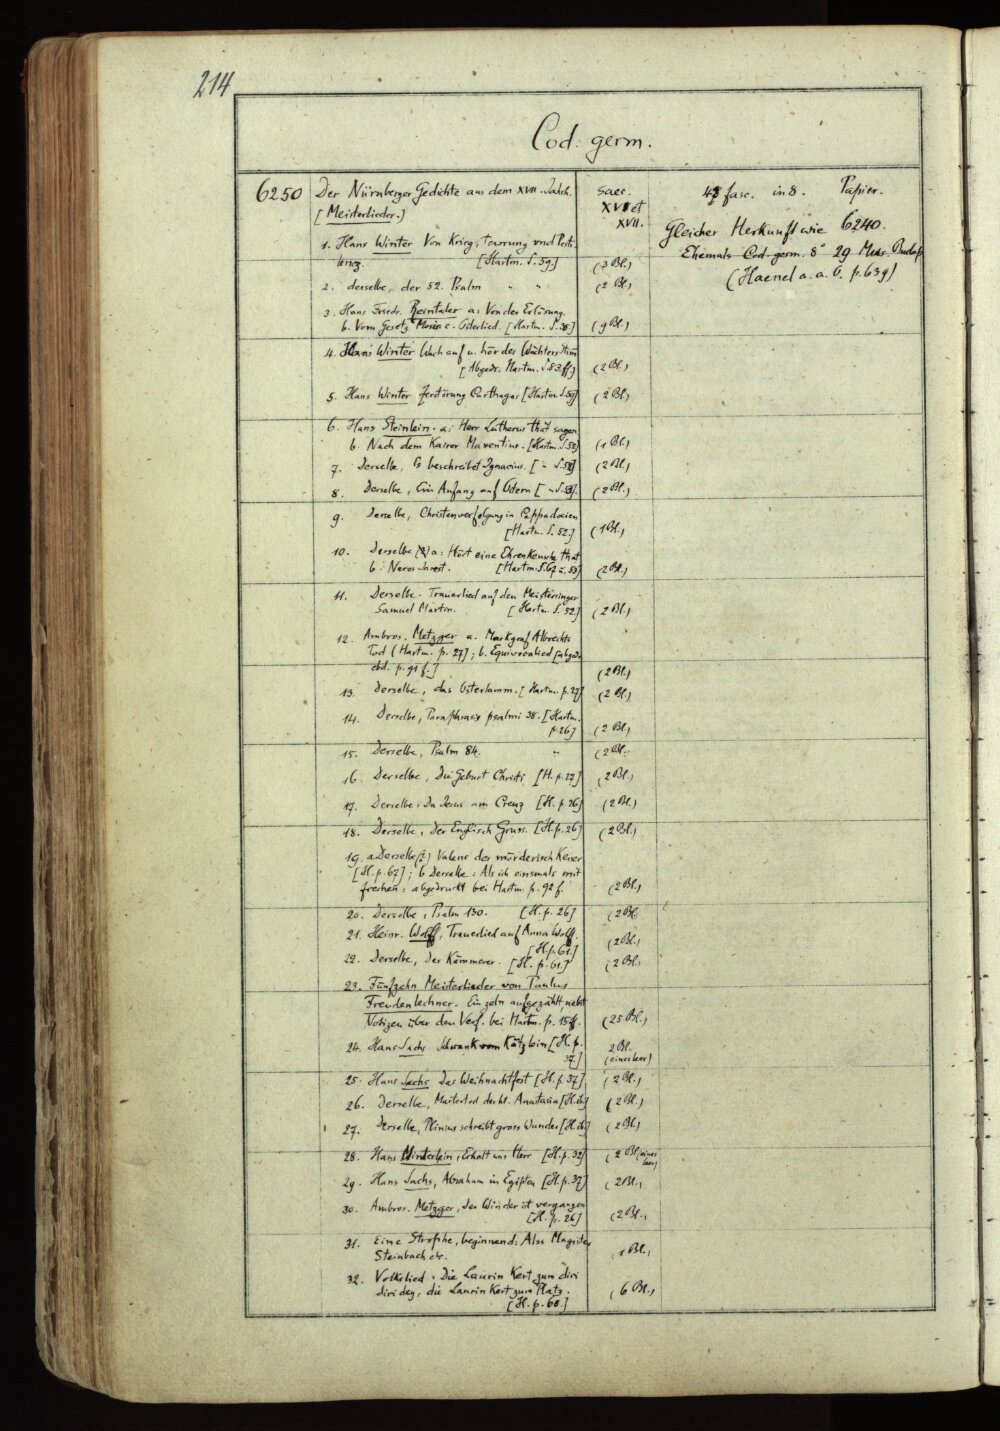 214
Cod. germ.
6250 Der Nürnberger Gedichte aus dem XVII. Jahrh. saec. 48 fasc. in 8. Papier.
[Meisterlieder.] XVI et XVII. Gleicher Herkunft wie 6240.
Ehemals Cod. germ. 8° 29 Mus. Budap.
(Haenel a. a. O. p. 639)
1. Hans Winter Von Krieg, Tewrung vnd Pesti
lenz. [Hartm. S. 59.] (3 Bl.)
2. derselbe, der 52. Psalm " " (2 Bl.)
3. Hans Friedr. Reintaler a: Von der Erlösung.
b. Vom Gesetz Mosis c. Osterlied. [Hartm. S. 38] (9 Bl.)
4. Hans Winter Wach auf u. hör des Wächters Stim
[Abgedr. Hartm. S. 83 ff.] (2 Bl.)
5. Hans Winter Zerstörung Carthagos [Hartm. S. 59] (2 Bl.)
6. Hans Steinlein. a: Herr Lutherus that sagen
b. Nach dem Kaiser Maxentius. [Hartm. S. 52] (1 Bl.)
7. Derselbe, Es beschreibet Ignacius. [ " S. 52] (2 Bl.)
8. Derselbe, Ein Anfang auf Ostern [ " S. 53]. (2 Bl.)
9. Derselbe, Christenverfolgung in Cappadocien
[Hartm. S. 52.] (1 Bl.)
10. Derselbe (?) a: Hört eine Ehrenkeusche that
b: Neros [Hartm. S. 67 u. 53] (2 Bl.)
11. Derselbe. Trauerlied auf den Meistersinger
Samuel Martin. [Hartm. S. 52] (2 Bl.)
12. Ambros. Metzger a. Markgraf Albrechts
Tod (Hartm. p. 27]; b. Equivocalied [abgedr.
ebd. p. 91 f.] (2 Bl.)
13. Derselbe, das Osterlamm. [Hartm. p. 27] (2 Bl.)
14. Derselbe, Paraphrasis psalmi 38. [Hartm.
p. 26] (2 Bl.)
15. Derselbe, Psalm 84. " (2 Bl.
16. Derselbe, Die Geburt Christi, [H. p. 27] (2 Bl.)
17. Derselbe: Da Jesus am Creuz [H. p. 26] (2 Bl.)
18. Derselbe, Der Englisch Gruss. [H. p. 26] (2 Bl.)
19. a Derselbe (?) Valens der mörderisch Keiser
[H. p. 67]; b Derselbe: Als ich einsmals mit
frechen: abgedruckt bei Hartm. p. 92 f. (2 Bl.)
20. Derselbe, Psalm 130. [H. p. 26] (2 Bl.
21. Heinr. Wolff, Trauerlied auf Anna Wolff.
[H. p. 61.] (2 Bl.)
22. Derselbe, Der Kämmerer. [H. p. 61.] (2 Bl.
23. Fünfzehn Meisterlieder von Paulus
Freudenlechner. Einzeln aufgezählt nebst
Notizen über den Verf. bei Hartm. p. 15 ff. (25 Bl.)
24. Hans Sachs Schwank vom Kätzlein [H. p.
37.] 2 Bl. (eines leer)
25. Hans Sachs Das Weihnachtfest [H. p. 37] (2 Bl.)
26. Derselbe, Martertod der hl. Anastasia [H. ib.] (2 Bl.)
27. Derselbe, Plinius schreibt gross Wunder [H. ib.] (2 Bl.)
28. Hans Winterlein, Erhalt uns Herr [H. p. 32] (2 Bl. eines leer)
29. Hans Sachs, Abraham in Egipten [H. p. 37] (2 Bl.,
30. Ambros. Metzger, Der Winder ist vergangen
[H. p. 26] (2 Bl.,
31. Eine Strophe, beginnend: Alss Magister
Steinbach etc. (1 Bl.)
32. Volkslied: Die Laurin Kert zum diri
diri dey, die Laurin Kert zum Platz.
[H. p. 68.] (6 Bl.)